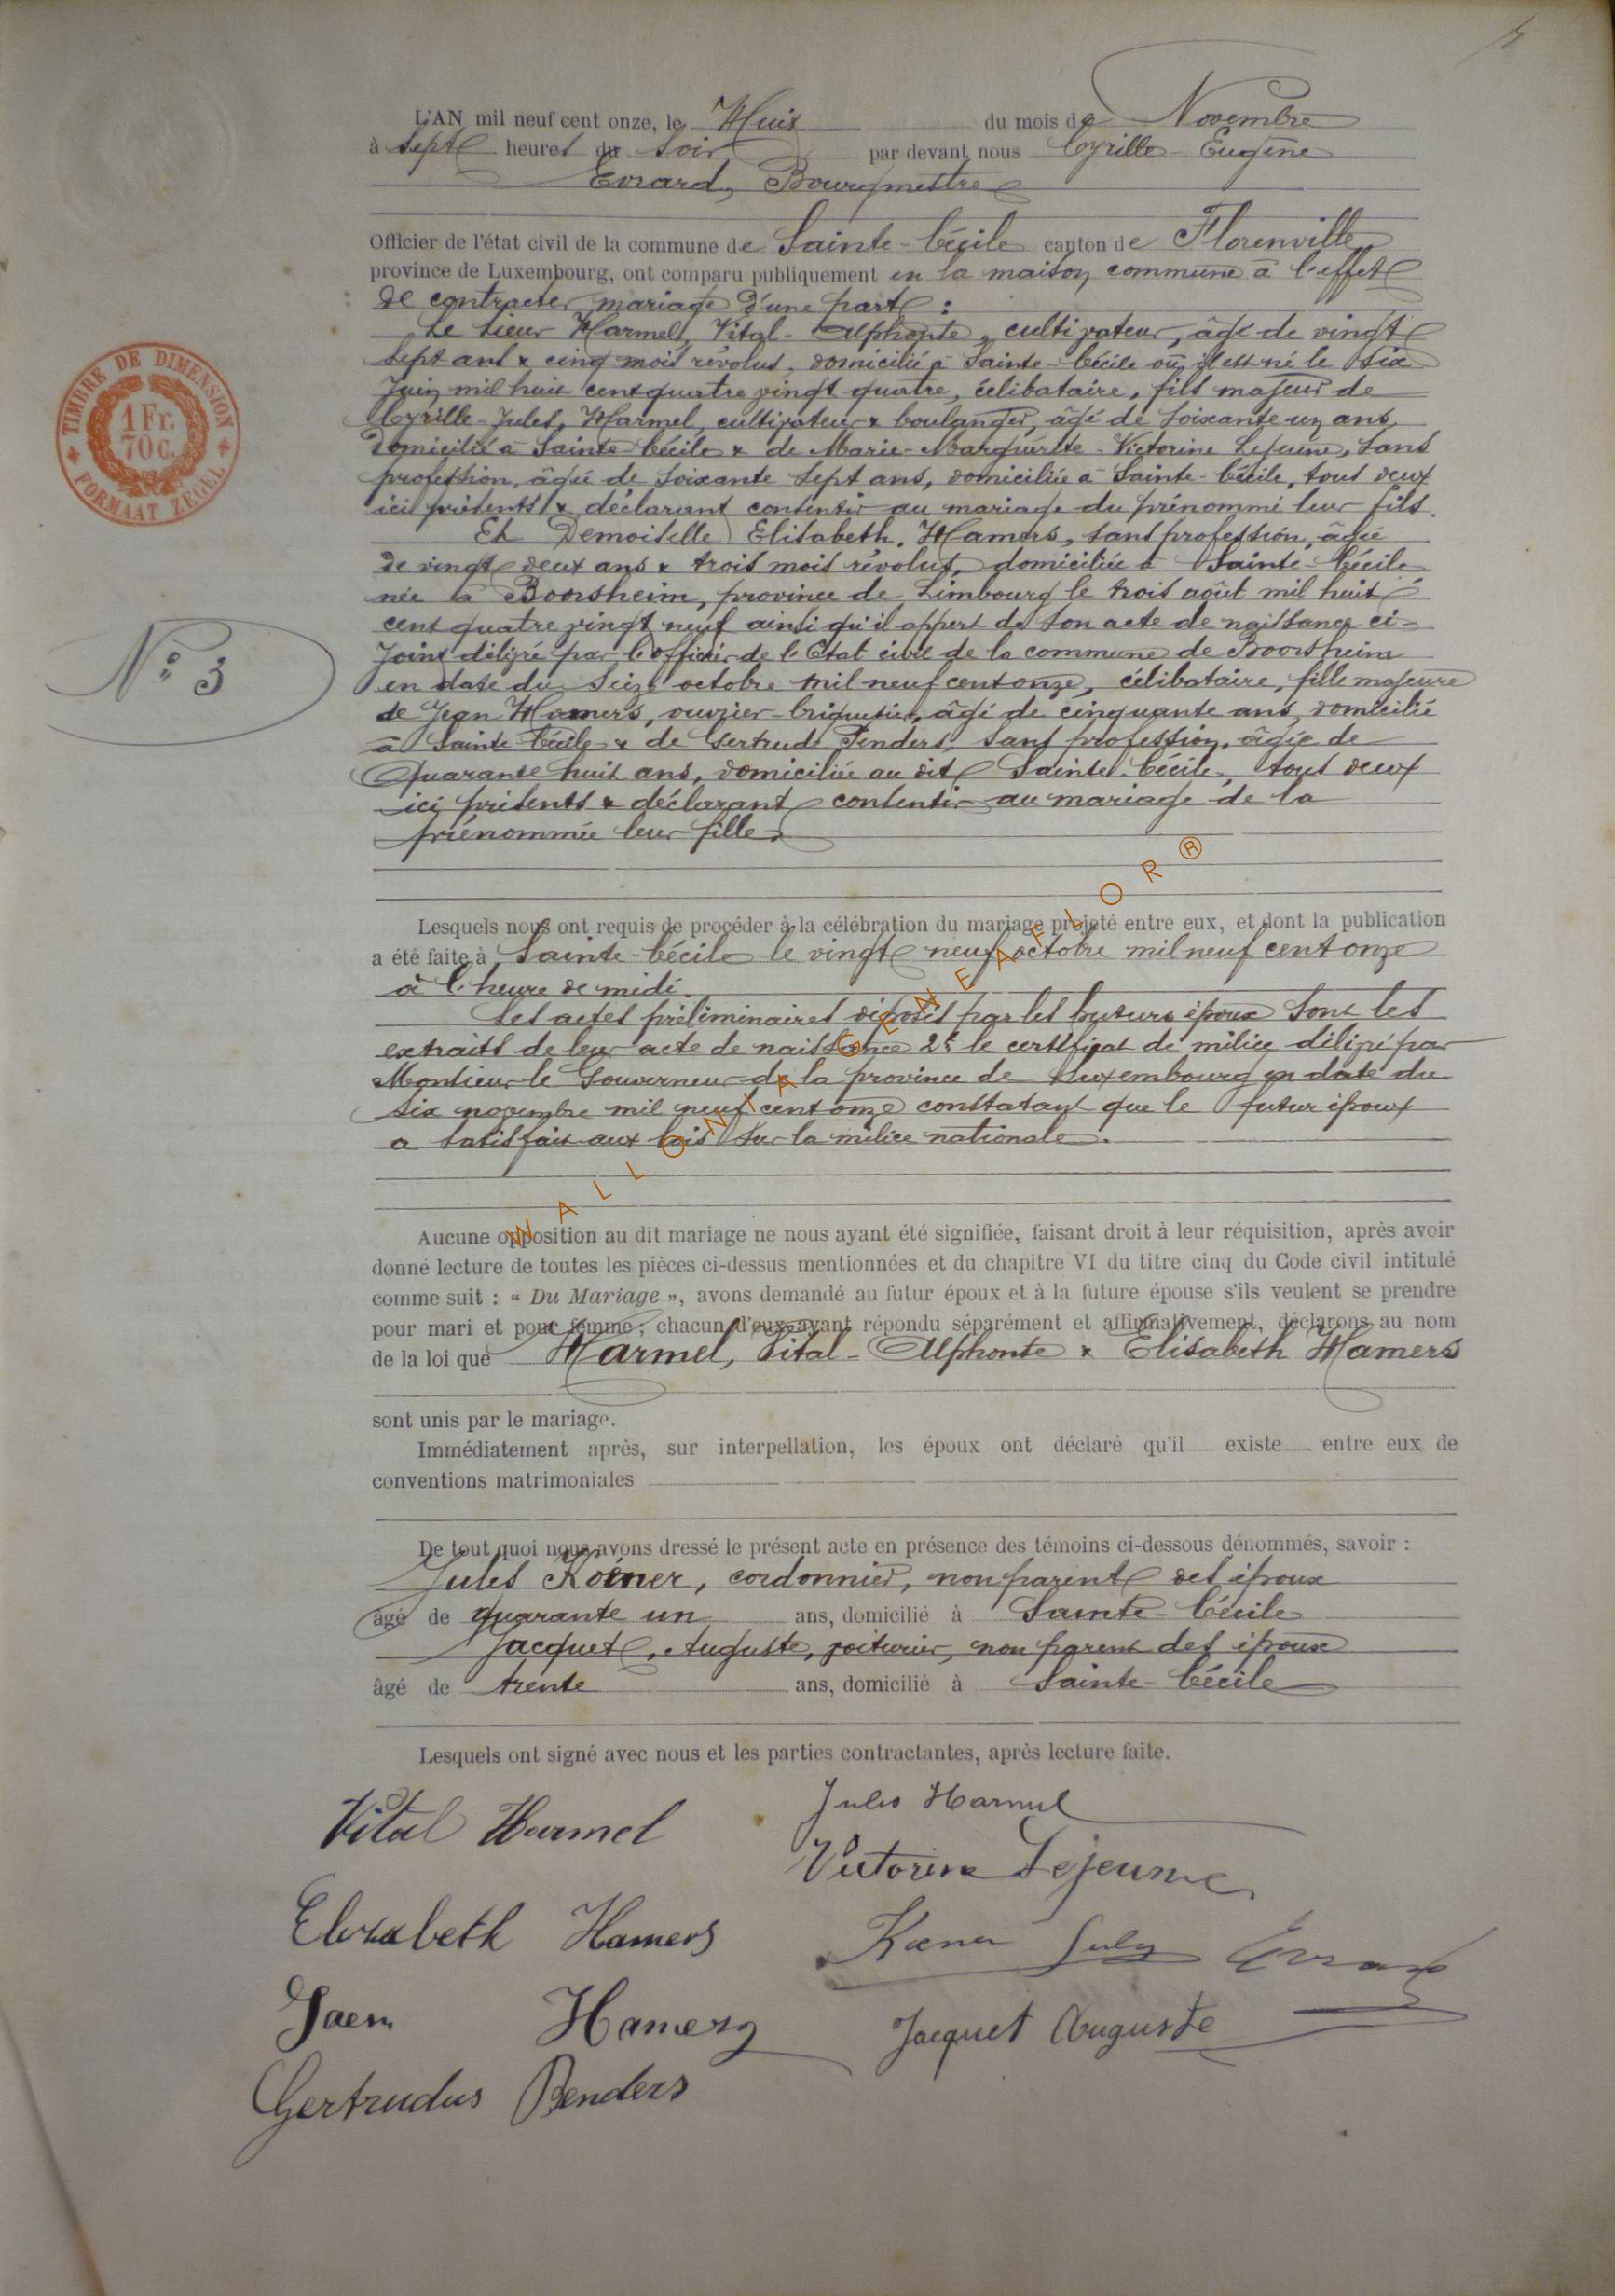 L'AN mil neuf cent onze, le Huit du mois de Novembre
à Sept heures du Soir par devant nous Cyrille-Eugène
Evrard, Bourgmestre
Officier de l'état civil de la commune de Sainte-Cécile canton de Florenville
province de Luxembourg, ont comparu publiquement en la maison commune à l'effet
de contracter mariage d'une part :
Le sieur Harmel, Vital-Alphonse, cultivateur, âgé de vingt
sept ans & cinq mois révolus, domicilié à Sainte-Cécile où il est né le six
Juin mil huit cent quatre vingt quatre, célibataire, fils majeur de
Cyrille-Jules, Harmel, cultivateur & boulanger, âgé de soixante un ans,
domicilié à Sainte-Cécile & de Marie-Marguérite-Victorine Lejeune, sans
profession, âgée de soixante sept ans, domiciliée à Sainte-Cécile, tous deux
ici présents & déclarant consentir au mariage du prénommé leur fils.
Et Demoiselle Elisabeth. Hamers, sans profession, âgée
de vingt deux ans & trois mois révolus, domiciliée à Sainte-Cécile
née à Boorsheim, province de Limbourg le trois août mil huit
cent quatre vingt neuf ainsi qu'il appert de son acte de naissance ci-
joint délivré par l'officier de l'Etat civil de la commune de Boorsheim
en date du seize octobre mil neuf cent onze, célibataire, fille majeure
de Jean Hamers, ouvrier-briquetier, âgé de cinquante ans, domicilié
à Sainte-Cécile & de Gertrude Penders, sans profession, âgée de
Quarante huit ans, domiciliée au dit Sainte-Cécile, tous deux
ici présents & déclarant consentir au mariage de la
prénommée leur fille.
Nº 3
TIMBRE DE DIMENSION
1 Fr.
70 c.
FORMAAT ZEGEL
Lesquels nous ont requis de procéder à la célébration du mariage projeté entre eux, et dont la publication
a été faite à Sainte-Cécile le vingt neuf octobre mil neuf cent onze
à l'heure de midi.
Les actes préliminaires déposés par les futurs époux sont les
extraits de leur acte de naissance 2º le certificat de milice délivré par
Monsieur le Gouverneur de la province de Luxembourg en date du
six novembre mil neuf cent onze constatant que le futur époux
a satisfait aux lois sur la milice nationale.
WALLONIA GENEAFLOR®
Aucune opposition au dit mariage ne nous ayant été signifiée, faisant droit à leur réquisition, après avoir
donné lecture de toutes les pièces ci-dessus mentionnées et du chapitre VI du titre cinq du Code civil intitulé
comme suit : « Du Mariage », avons demandé au futur époux et à la future épouse s'ils veulent se prendre
pour mari et pour femme; chacun d'eux ayant répondu séparément et affirmativement, déclarons au nom
de la loi que Harmel, Vital-Alphonse & Elisabeth Hamers
sont unis par le mariage.
Immédiatement après, sur interpellation, les époux ont déclaré qu'il existe entre eux de
conventions matrimoniales
De tout quoi nous avons dressé le présent acte en présence des témoins ci-dessous dénommés, savoir :
Jules Koéner, cordonnier, non parent des époux
âgé de quarante un ans, domicilié à Sainte-Cécile
Jacquet, Auguste, voiturier, non parent des époux
âgé de trente ans, domicilié à Sainte-Cécile
Lesquels ont signé avec nous et les parties contractantes, après lecture faite.
Vital Harmel Jules Harmel
Victorine Lejeune
Elizabeth Hamers Kœner Jules Evrard
Jaen Hamers Jacquet Auguste
Gertrudus Penders